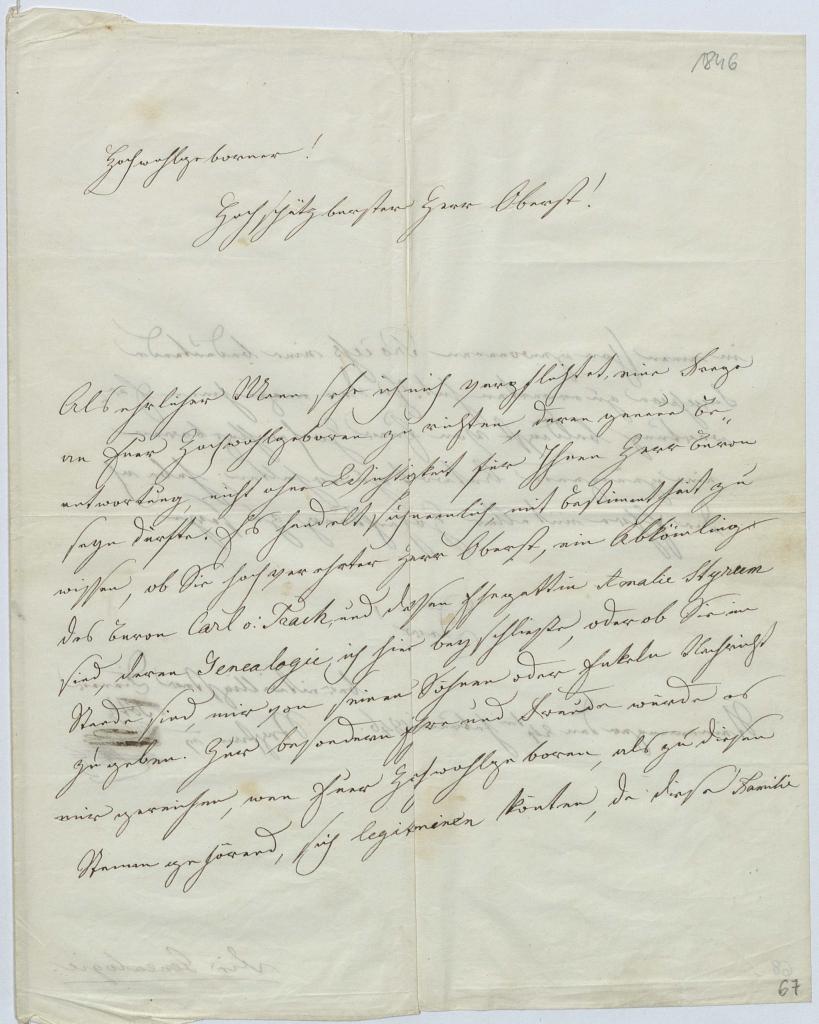 1846
Hochwohlgeborner!
Hochschätzbarster Herr Oberst!
Als ehrlicher Mann sehe ich mich verpflichtet, eine Frage
an Euer Hochwohlgeboren zu richten, deren genaue Be-
antwortung, nicht ohne Wichtigkeit für Ihnen Herr Baron
seyn dürfte. Es handelt sich nemlich mit Bestimmtheit zu
wissen, ob Sie hochverehrter Herr Oberst, ein Abkömling
des Baron Carl v: Trach, und dessen Ehegattin Amalie Styrum
sind deren Genealogie, ich hier beyschließe, oder ob Sie im
Stande sind, mir von seinen Söhnen oder Enkeln Nachricht
zu geben. Zur besondern Ehre und Freude würde es
mir gereichen, wen Euer Hochwohlgeboren, als zu diesen
Stamm gehörend, sich legitimiren könten, da diese Familie
67